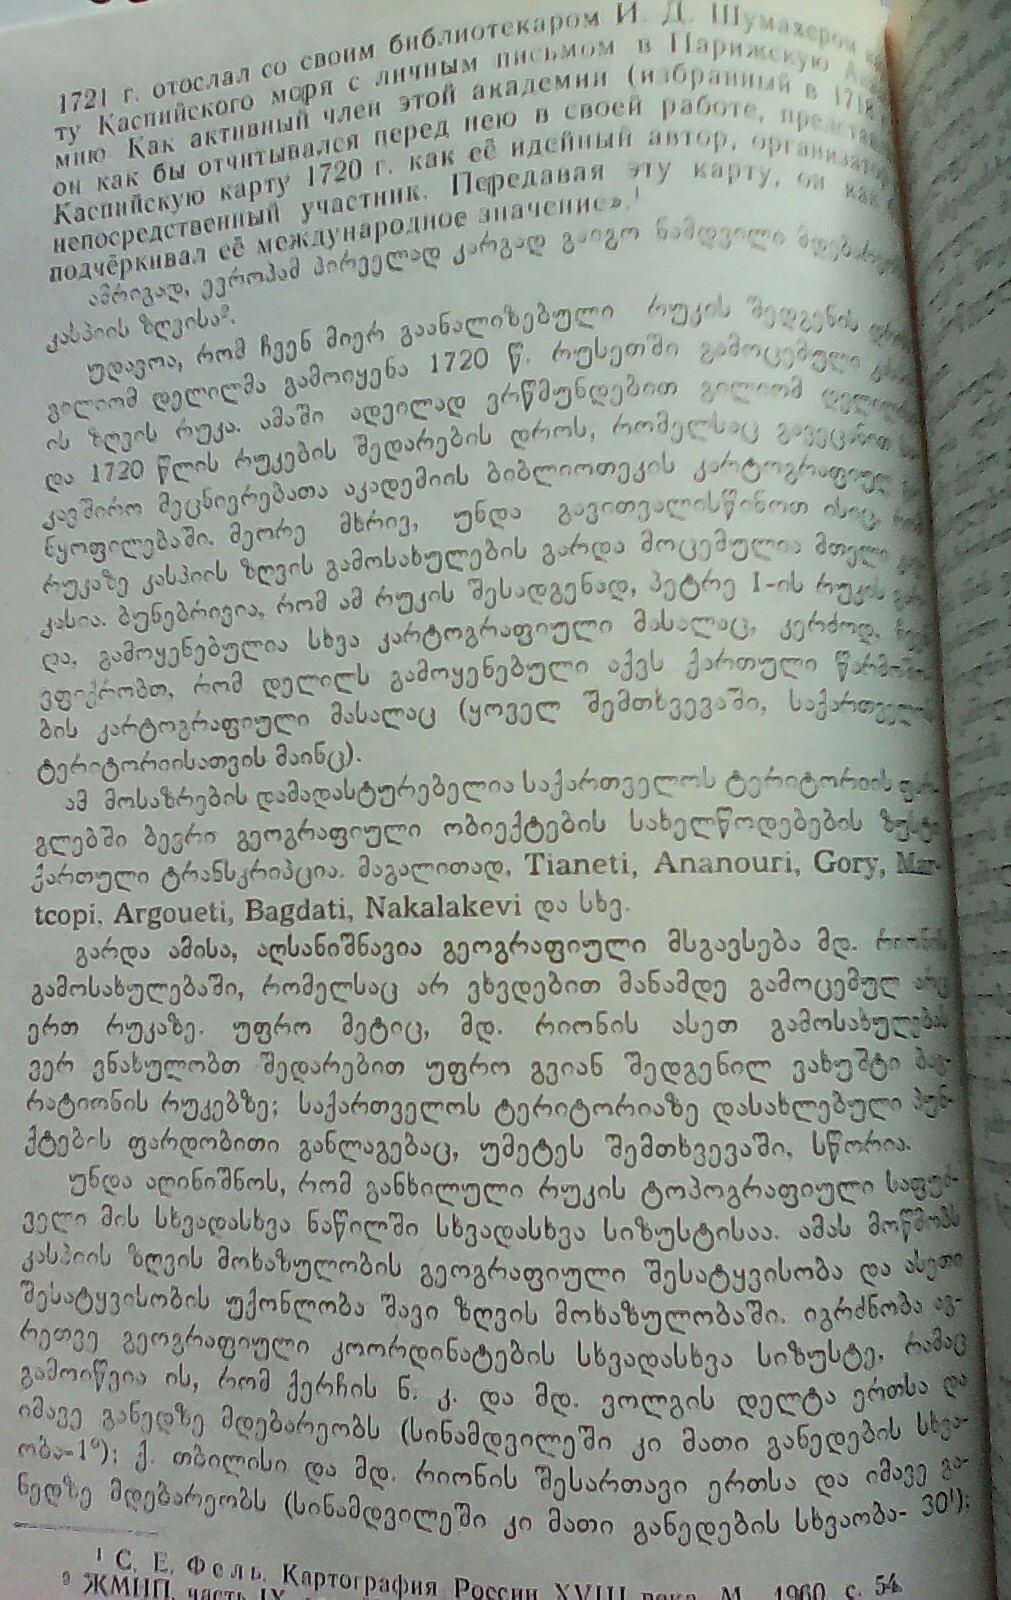 1721 г. отослал со своим библиотекаром И. Д. Шумахером
ту Каспийского моря с личным письмом в Парижскую
мию. Как активный член этой академии (избранный в 1718
он как бы отчитывался перед нею в своей работе,
Каспийскую карту 1720 г. как её идейный автор,
непосредственный участник. Передавая эту карту, он как
подчёркивал её международное значение».¹
ამრიგად, ევროპამ პირველად კარგად გაიგო ნამდვილი
კასპიის ზღვისა².
უდავოა, რომ ჩვენ მიერ გაანალიზებული რუკის შედგენის
გილიომ დელილმა გამოიყენა 1720 წ. რუსეთში გამოცემული
ის ზღვის რუკა. ამაში ადვილად ვრწმუნდებით გილიომ
და 1720 წლის რუკების შედარების დროს, რომელსაც გავეცანით
კავშირო მეცნიერებათა აკადემიის ბიბლიოთეკის
ნყოფილებაში. მეორე მხრივ, უნდა გავითვალისწინოთ ისიც,
რუკაზე კასპიის ზღვის გამოსახულების გარდა მოცემულია მთელი
კასია. ბუნებრივია, რომ ამ რუკის შესადგენად, პეტრე I-ის რუკის
და, გამოყენებულია სხვა კარტოგრაფიული მასალაც, კერძოდ,
ვფიქრობთ, რომ დელილს გამოყენებული აქვს ქართული
ბის კარტოგრაფიული მასალაც (ყოველ შემთხვევაში,
ტერიტორიისათვის მაინც).
ამ მოსაზრების დამადასტურებელია საქართველოს ტერიტორიის
გლებში ბევრი გეოგრაფიული ობიექტების სახელწოდებების
ქართული ტრანსკრიპცია. მაგალითად, Tianeti, Ananouri, Gory, Mar-
tcopi, Argoueti, Bagdati, Nakalakevi და სხვ.
გარდა ამისა, აღსანიშნავია გეოგრაფიული მსგავსება მდ. რიონის
გამოსახულებაში, რომელსაც არ ვხვდებით მანამდე გამოცემულ არც
ერთ რუკაზე. უფრო მეტიც, მდ. რიონის ასეთ გამოსახულებას
ვერ ვნახულობთ შედარებით უფრო გვიან შედგენილ ვახუშტი ბაგ-
რატიონის რუკებზე; საქართველოს ტერიტორიაზე დასახლებული პუნ-
ქტების ფარდობითი განლაგებაც, უმეტეს შემთხვევაში, სწორია.
უნდა აღინიშნოს, რომ განხილული რუკის ტოპოგრაფიული საფუძ-
ველი მის სხვადასხვა ნაწილში სხვადასხვა სიზუსტისაა. ამას მოწმობს
კასპიის ზღვის მოხაზულობის გეოგრაფიული შესატყვისობა და ასეთი
შესატყვისობის უქონლობა შავი ზღვის მოხაზულობაში. იგრძნობა აგ-
რეთვე გეოგრაფიული კოორდინატების სხვადასხვა სიზუსტე, რამაც
გამოიწვია ის, რომ ქერჩის ნ. კ. და მდ. ვოლგის დელტა ერთსა და
იმავე განედზე მდებარეობს (სინამდვილეში კი მათი განედების სხვა-
ობა-1°); ქ. თბილისი და მდ. რიონის შესართავი ერთსა და იმავე გა-
ნედზე მდებარეობს (სინამდვილეში კი მათი განედების სხვაობა- 30');
¹ С. Е. Фель. Картография России XVIII века. М., 1960, с. 54.
² ЖМНП, часть IX,